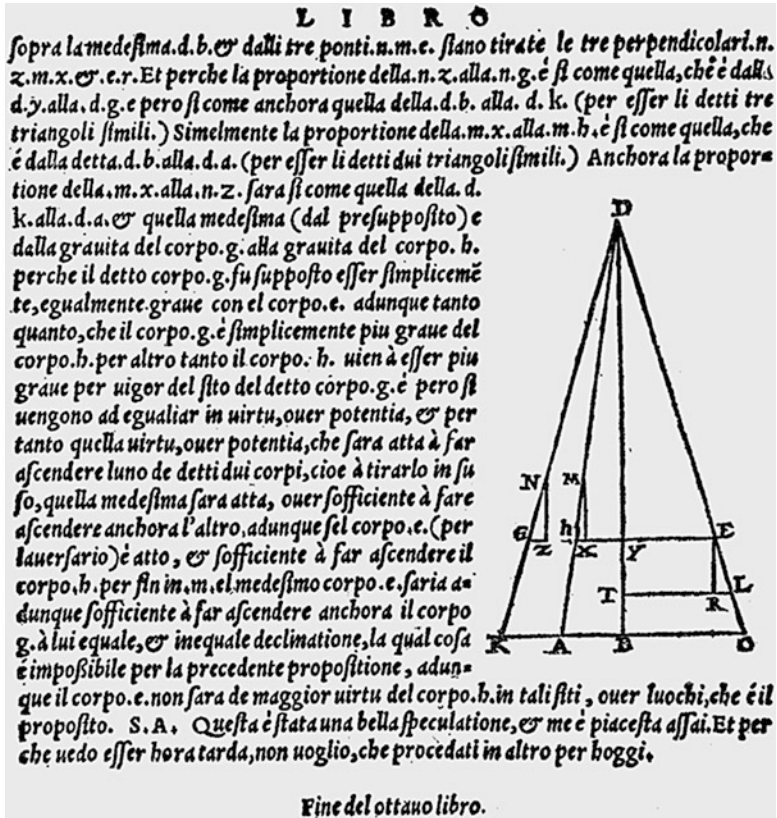 LIBRO
sopra la medesima.d.b.& dalli tre ponti.n.m.e. siano tirate le tre perpendicolari.n.
z.m.x.&.e.r.Et perche la proportione della.n.z.alla.n.g.é si come quella,che é dalla
d.y.alla.d.g.e pero si come anchora quella della.d.b. alla. d.k. (per esser li detti tre
triangoli simili.) Simelmente la proportione della.m.x.alla.m.h.é si come quella,che
é dalla detta.d.b.alla.d.a.(per esser li detti dui triangoli simili.) Anchora la propor=
tione della.m.x.alla.n.z.sara si come quella della.d.
k.alla.d.a.& quella medesima (dal presupposito) e
dalla grauita del corpo.g.alla grauita del corpo.h.
perche il detto corpo.g.fu supposto esser simplicemē
te,egualmente graue con el corpo.e. adunque tanto
quanto,che il corpo.g.é simplicemente piu graue del
corpo.h.per altro tanto il corpo.h. uien à esser piu
graue per uigor del sito del detto corpo.g.é pero si
uengono ad egualiar in uirtu,ouer potentia,& per
tanto quella uirtu,ouer potentia,che sara atta à far
ascendere luno de detti dui corpi,cioe à tirarlo in su
so,quella medesima sara atta, ouer sofficiente à fare
ascendere anchora l'altro,adunque sel corpo.e.(per
lauersario)é atto, & sofficiente à far ascendere il
corpo.h.per fin in.m.el medesimo corpo.e.saria a=
dunque sofficiente à far ascendere anchora il corpo
g.à lui equale,& inequale declinatione,la qual cosa
é impoßibile per la precedente propositione, adun=
que il corpo.e.non sara de maggior uirtu del corpo.h.in tali siti, ouer luochi,che é il
proposito. S.A. Questa é stata una bella speculatione,& me é piacesta assai.Et per
che uedo esser hora tarda,non uoglio,che procedati in altro per hoggi.
D
N M
G Z h X Y E
T R L
K A B O
Fine del ottauo libro.